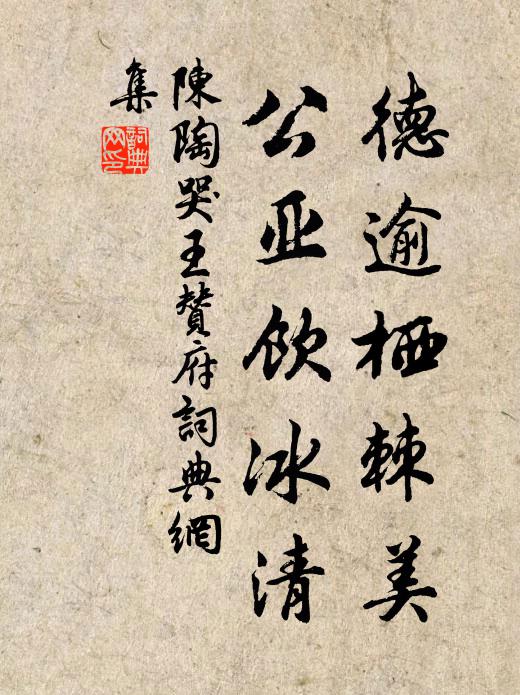 德逾栖棘美
公亚饮冰清
陳陶哭王贊府詞典網
集
詞典
网印